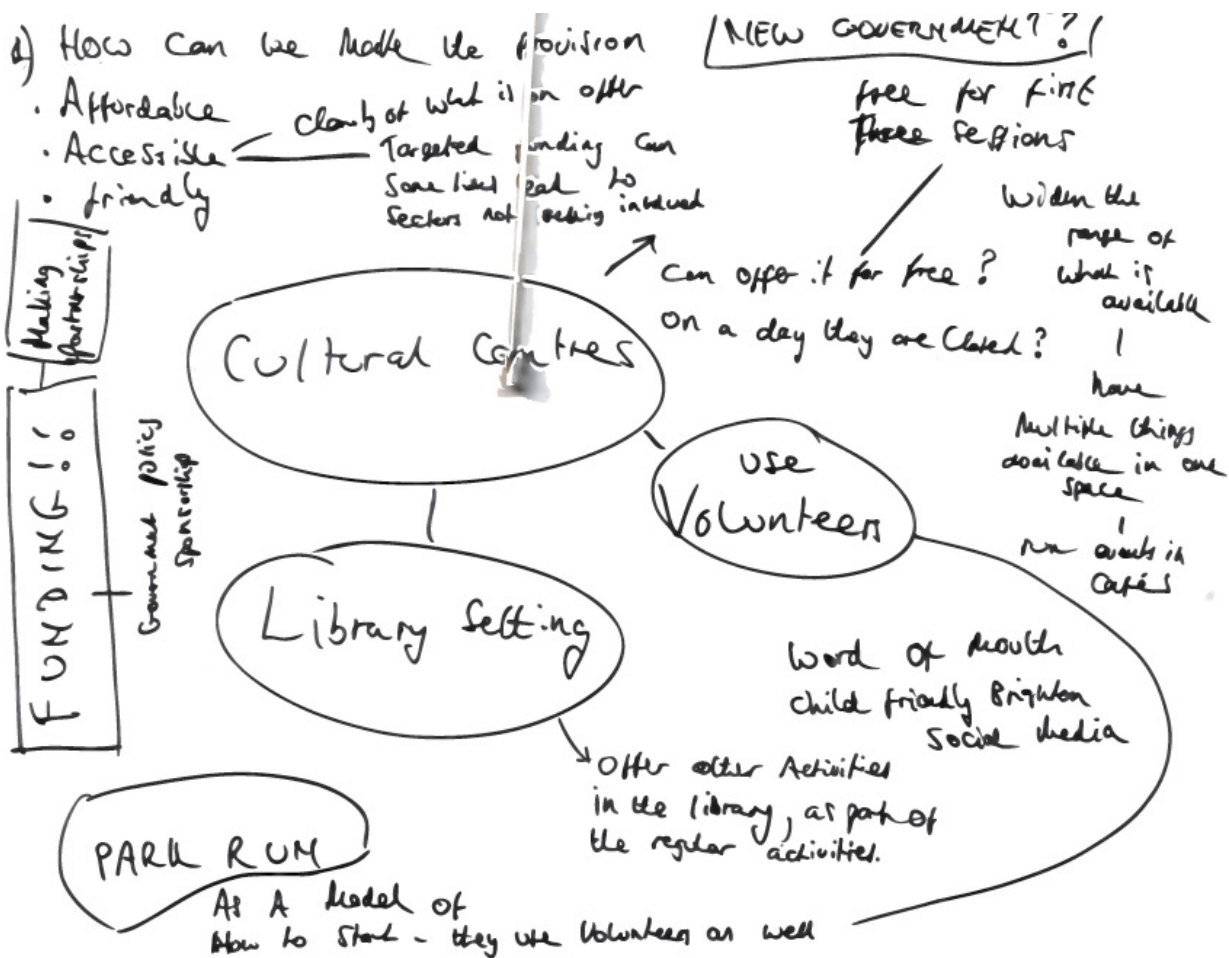 d) How can we make the provision
. Affordable
. Accessible
. friendly
clarity of what is on offer
Targeted funding can
sometimes lead to
sectors not getting involved
NEW GOVERNMENT?
free for first
three sessions
Widen the
range of
what is
available
have
multiple things
available in one
space
run events in
cafés
can offer it for free?
on a day they are closed?
Making
partnerships
FUNDING!!
Government policy
sponsorship
Cultural Centres
use
Volunteers
Library setting
word of mouth
child friendly Brighton
social media
offer other Activities
in the library, as part of
the regular activities.
PARK RUN
As A model of
How to start - they use volunteers as well